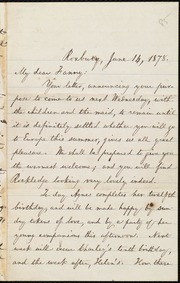 Roxbury, June 14, 1878.
My dear Fanny:
Your letter, announcing your pur-
pose to come to us next Wednesday, with
the children and the maid, to remain until
it is definitely settled whether you will go
to Europe this summer, gives us all great
pleasure. We shall be prepared to give you
the warmest welcome; and you will find
Rockledge looking very lovely indeed.
To-day Agnes completes her twelfth
birthday, and will be made happy by sun-
dry tokens of love, and by a party of her
young companions this afternoon. Next
week will come Charley's tenth birthday,
and the week after, Helen's. How these